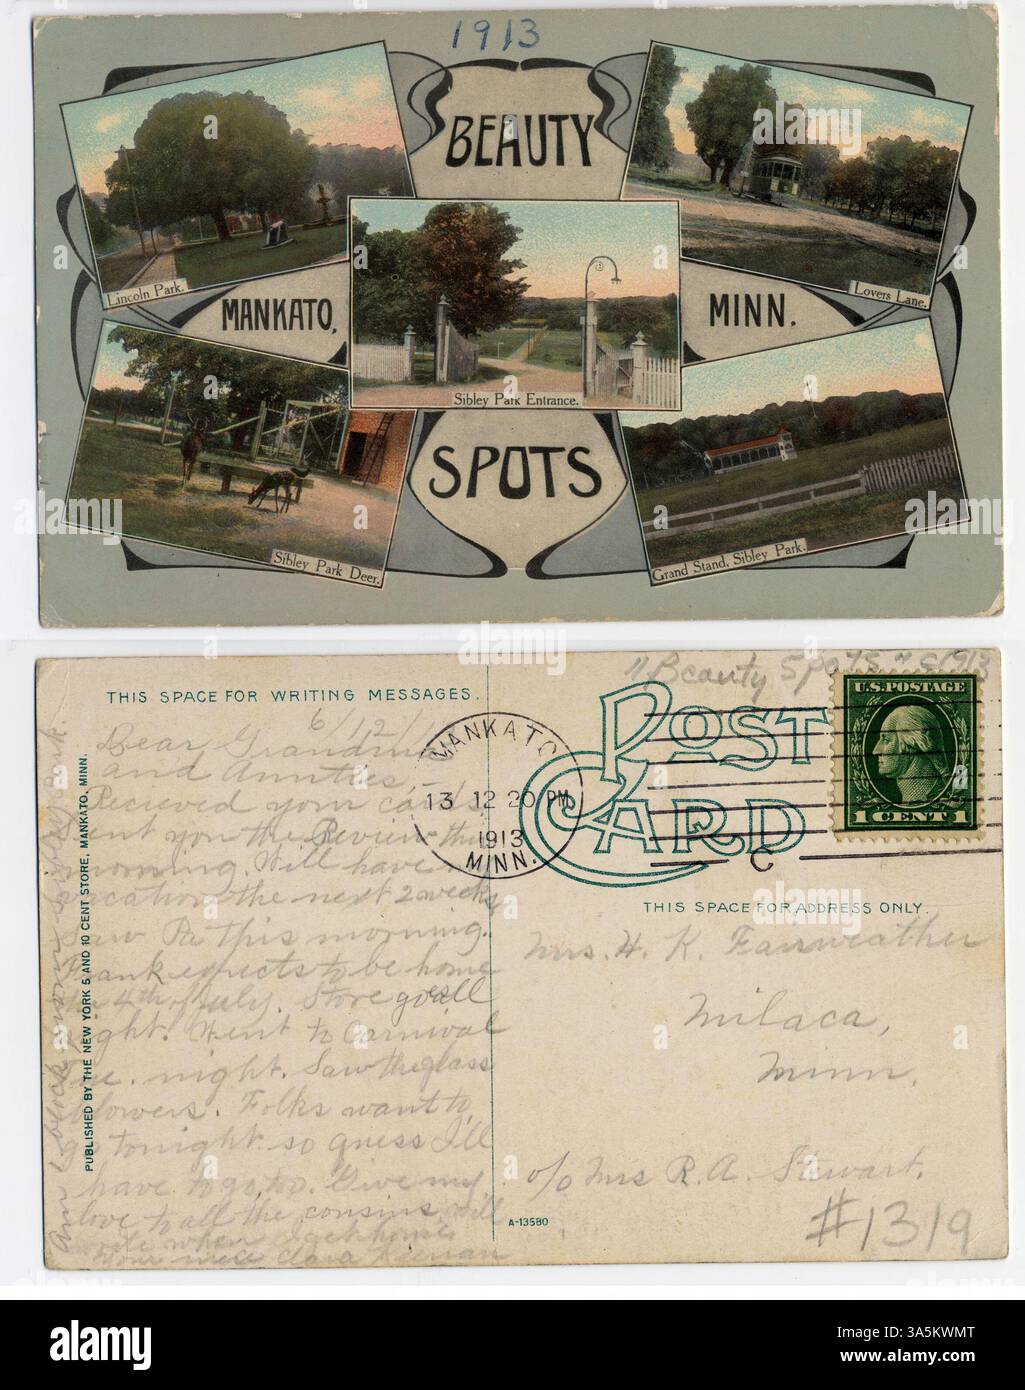 1913
BEAUTY
Lincoln Park.
Lovers Lane.
MANKATO,
MINN.
Sibley Park Entrance.
SPOTS
Sibley Park Deer.
Grand Stand, Sibley Park.
"Beauty Spots" c1913
THIS SPACE FOR WRITING MESSAGES.
POST CARD
U.S. POSTAGE
1 CENT 1
MANKATO
13 12 20 PM
1913
MINN.
C
THIS SPACE FOR ADDRESS ONLY.
6/12/1
Dear Grandma
and Aunties -
Recieved your card
sent you the Review this
morning. Will have
vacation the next 2 weeks
saw Pa this morning.
Frank expects to be home
4th of July. Store goes all
right. Went to Carnival
night. Saw the glass
blowers. Folks want to
go tonight so guess I'll
have to go, too. Give my
love to all the cousins, will
write when
Your niece Clara
Am 1 block from Sibley Park.
PUBLISHED BY THE NEW YORK 5 AND 10 CENT STORE, MANKATO, MINN.
Mrs. H. K. Fairweather
Milaca,
Minn.
c/o Mrs R. A. Stewart.
A-13580
#1319
alamy
Image ID: 3A5KWMT
www.alamy.com